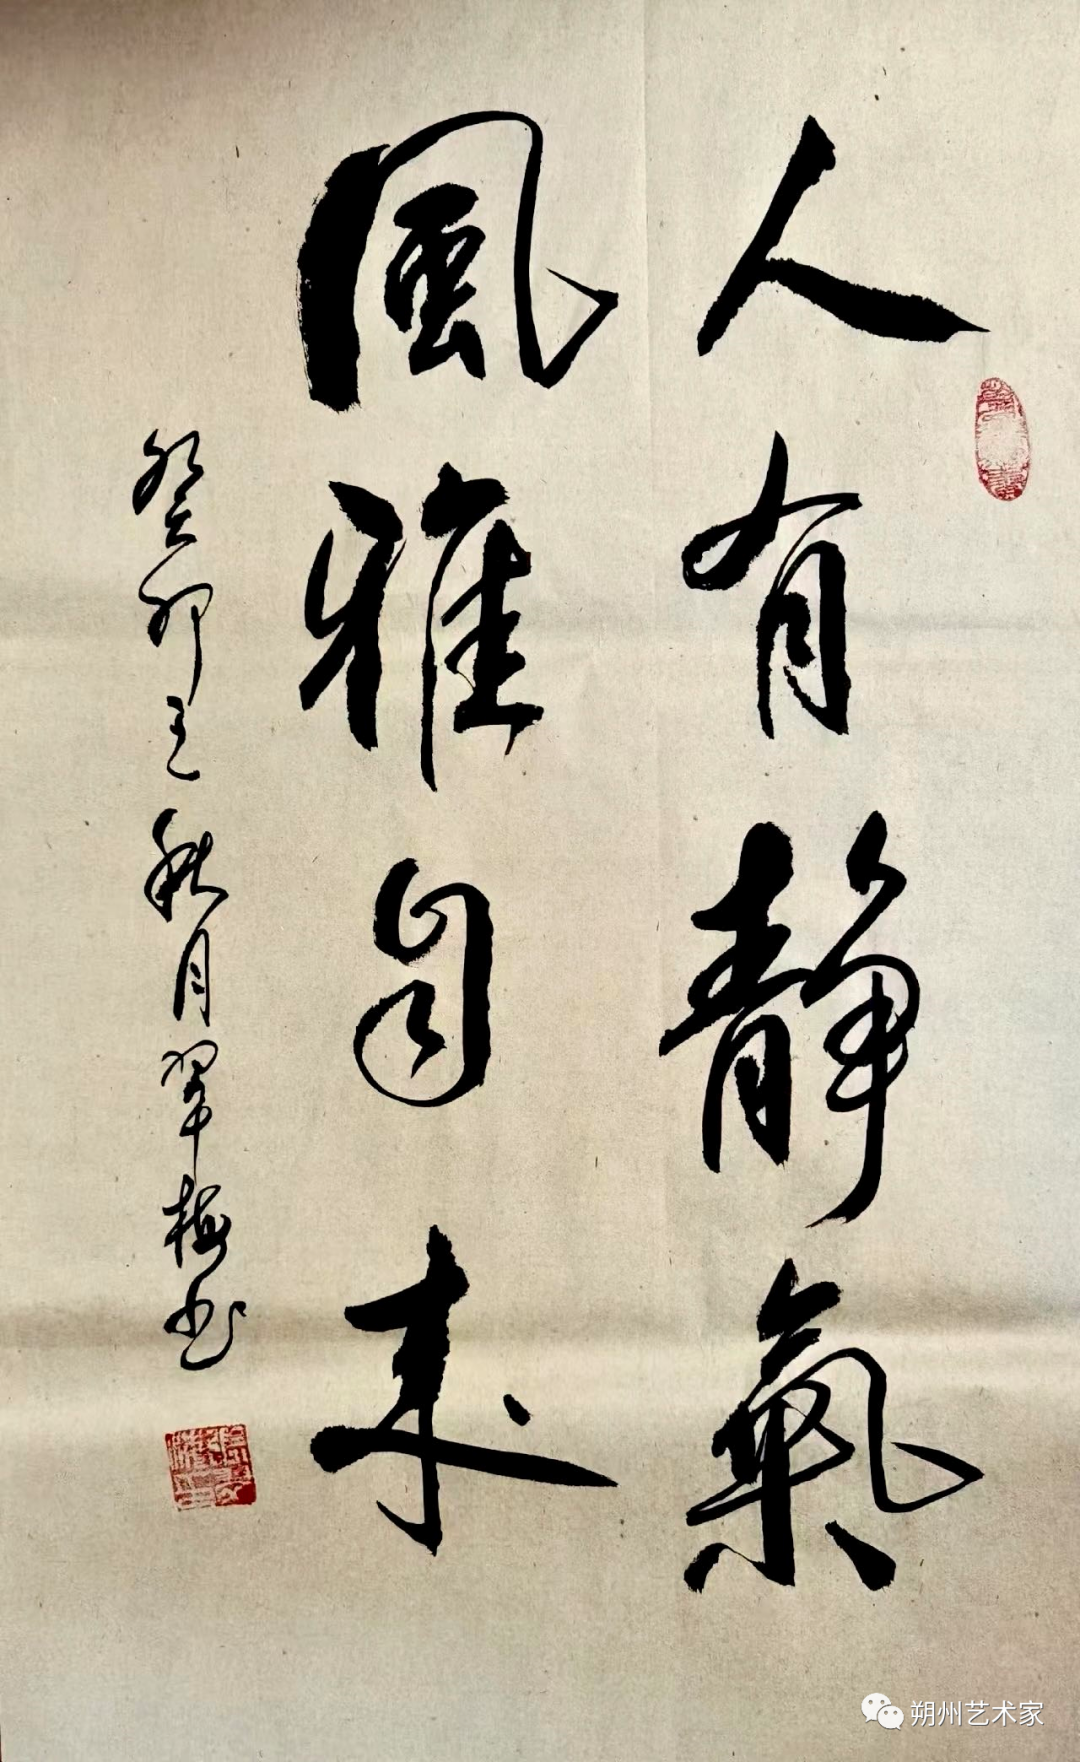 人有靜氣
風雅自来
癸卯之秋月翠梅书
朔州艺术家